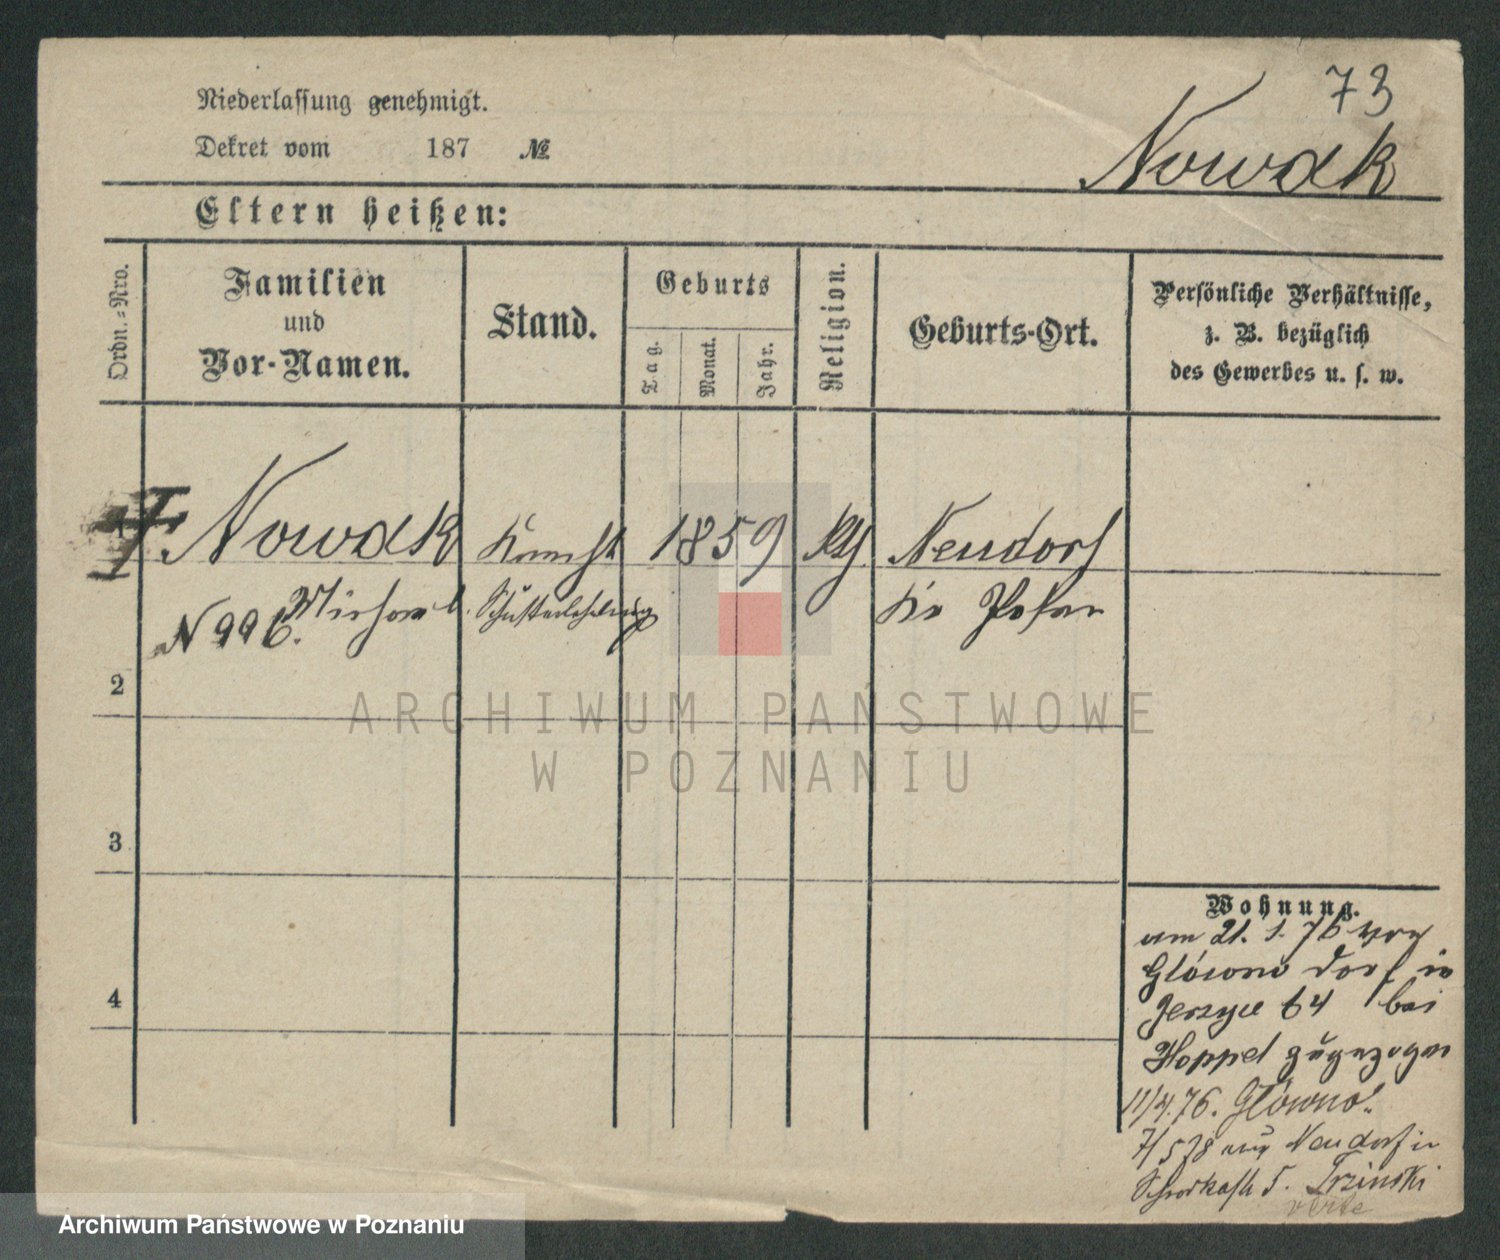 73
Niederlassung genehmigt.
Dekret vom 187 №
Nowak
Eltern heißen:
Ordn.-Nro.
Familien
und
Vor-Namen.
Stand.
Geburts
Tag.
Monat.
Jahr.
Religion.
Geburts-Ort.
Persönliche Verhältnisse,
z. B. bezüglich
des Gewerbes u. s. w.
1 Nowak Knecht 1859 Kth. Neudorf
Schusterlehrling Krs Posen
N 996.
2
3
4
Wohnung.
am 21. 1. 76 von
Główno dorf in
Jerzyce 64 bei
Hoppel zugezogen
11/4.76. Główno.
7/5 78 aus Neudorf in
5. Trzinski
verte
ARCHIWUM PAŃSTWOWE
W POZNANIU
Archiwum Państwowe w Poznaniu